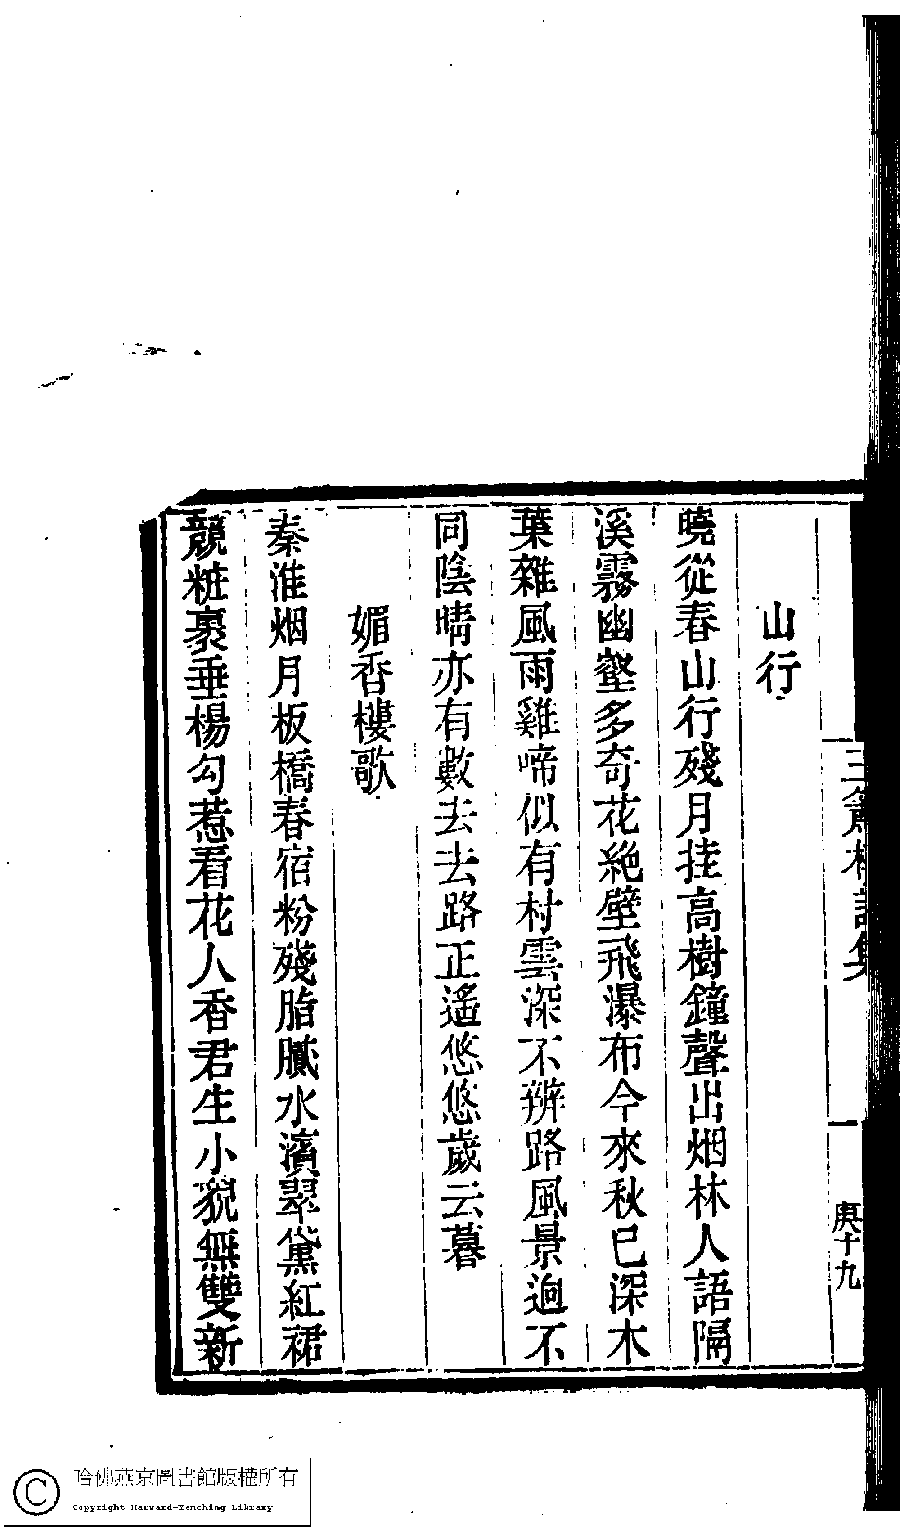 山行
曉從春山行殘月挂高樹鐘聲出烟林人語隔
溪霧幽壑多奇花絶壁飛瀑布今來秋已深木
葉雜風雨雞啼似有村雲深不辨路風景迥不
同陰晴亦有數去去路正遙悠悠歲云暮
媚香樓歌
秦淮烟月板橋春宿粉殘脂膩水濱翠黛紅裙
競粧裹垂楊勾惹看花人香君生小貌無雙新
庚十九
哈佛燕京圖書館版權所有
Copyright Harvard-Yenching Library